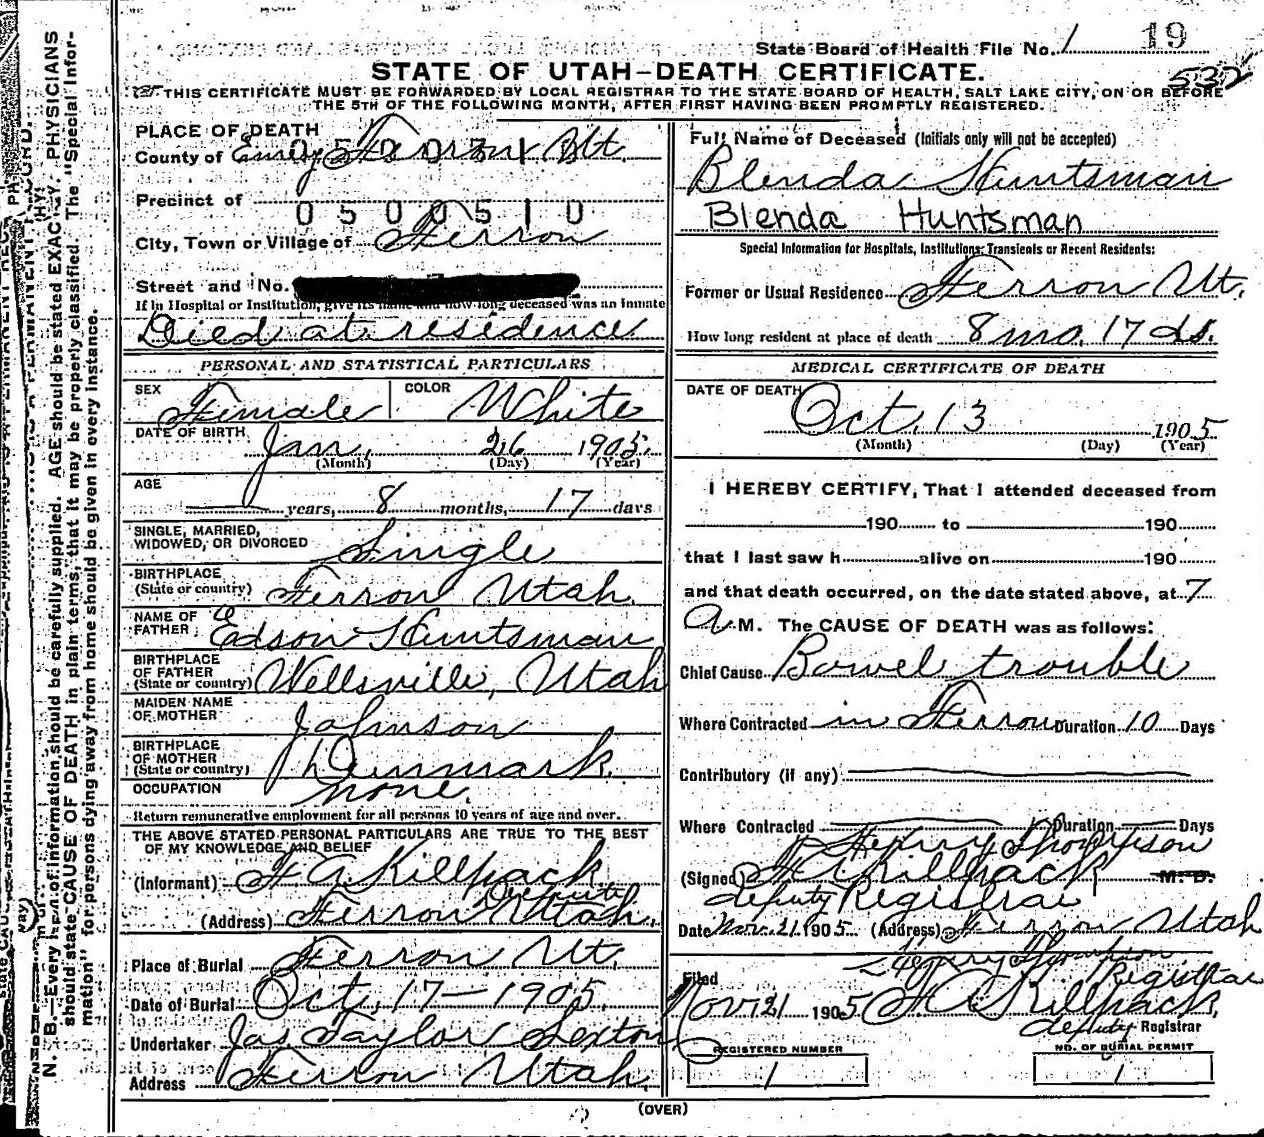 State Board of Health File No. 1 19
532
STATE OF UTAH—DEATH CERTIFICATE.
THIS CERTIFICATE MUST BE FORWARDED BY LOCAL REGISTRAR TO THE STATE BOARD OF HEALTH, SALT LAKE CITY, ON OR BEFORE
THE 5TH OF THE FOLLOWING MONTH, AFTER FIRST HAVING BEEN PROMPTLY REGISTERED.
PLACE OF DEATH
County of Emery Ferron Ut.
Precinct of
0500510
City, Town or Village of Ferron
Street and No.
If in Hospital or Institution, give its name and how long deceased was an inmate
Died at residence
PERSONAL AND STATISTICAL PARTICULARS
SEX Female COLOR White
DATE OF BIRTH Jan. 26 1905.
(Month) (Day) (Year)
AGE
years, 8 months, 17 days
SINGLE, MARRIED,
WIDOWED, OR DIVORCED Single
BIRTHPLACE
(State or country) Ferron Utah.
NAME OF
FATHER Edson Huntsman
BIRTHPLACE
OF FATHER
(State or country) Wellsville, Utah
MAIDEN NAME
OF MOTHER Johnson
BIRTHPLACE
OF MOTHER
(State or country) Denmark.
OCCUPATION none.
Return remunerative employment for all persons 10 years of age and over.
THE ABOVE STATED PERSONAL PARTICULARS ARE TRUE TO THE BEST
OF MY KNOWLEDGE AND BELIEF
(Informant) F A Killpack
(Address) Ferron Utah.
Place of Burial Ferron Ut.
Date of Burial Oct. 17—1905.
Undertaker Jas Taylor Sexton
Address Ferron Utah.
Full Name of Deceased (Initials only will not be accepted)
Blenda Huntsman
Blenda Huntsman
Special Information for Hospitals, Institutions, Transients or Recent Residents:
Former or Usual Residence Ferron Ut.
How long resident at place of death 8 mo. 17 ds.
MEDICAL CERTIFICATE OF DEATH
DATE OF DEATH
Oct. 13 1905
(Month) (Day) (Year)
I HEREBY CERTIFY, That I attended deceased from
190 to 190
that I last saw h alive on 190
and that death occurred, on the date stated above, at 7
A.M. The CAUSE OF DEATH was as follows:
Chief Cause Bowel trouble
Where Contracted in Ferron Duration 10 Days
Contributory (if any)
Where Contracted Duration Days
Henry Thompson
(Signed) F A Killpack M. D.
deputy Registrar
Date Nov. 21 1905. (Address) Ferron Utah
Henry Thompson
Registrar
Filed
Nov 21 1905 F A Killpack,
deputy Registrar
REGISTERED NUMBER
1
NO. OF BURIAL PERMIT
1
(OVER)
N. B.—Every item of information should be carefully supplied. AGE should be stated EXACTLY. PHYSICIANS
should state CAUSE OF DEATH in plain terms, that it may be properly classified. The "Special Infor-
mation" for persons dying away from home should be given in every instance.